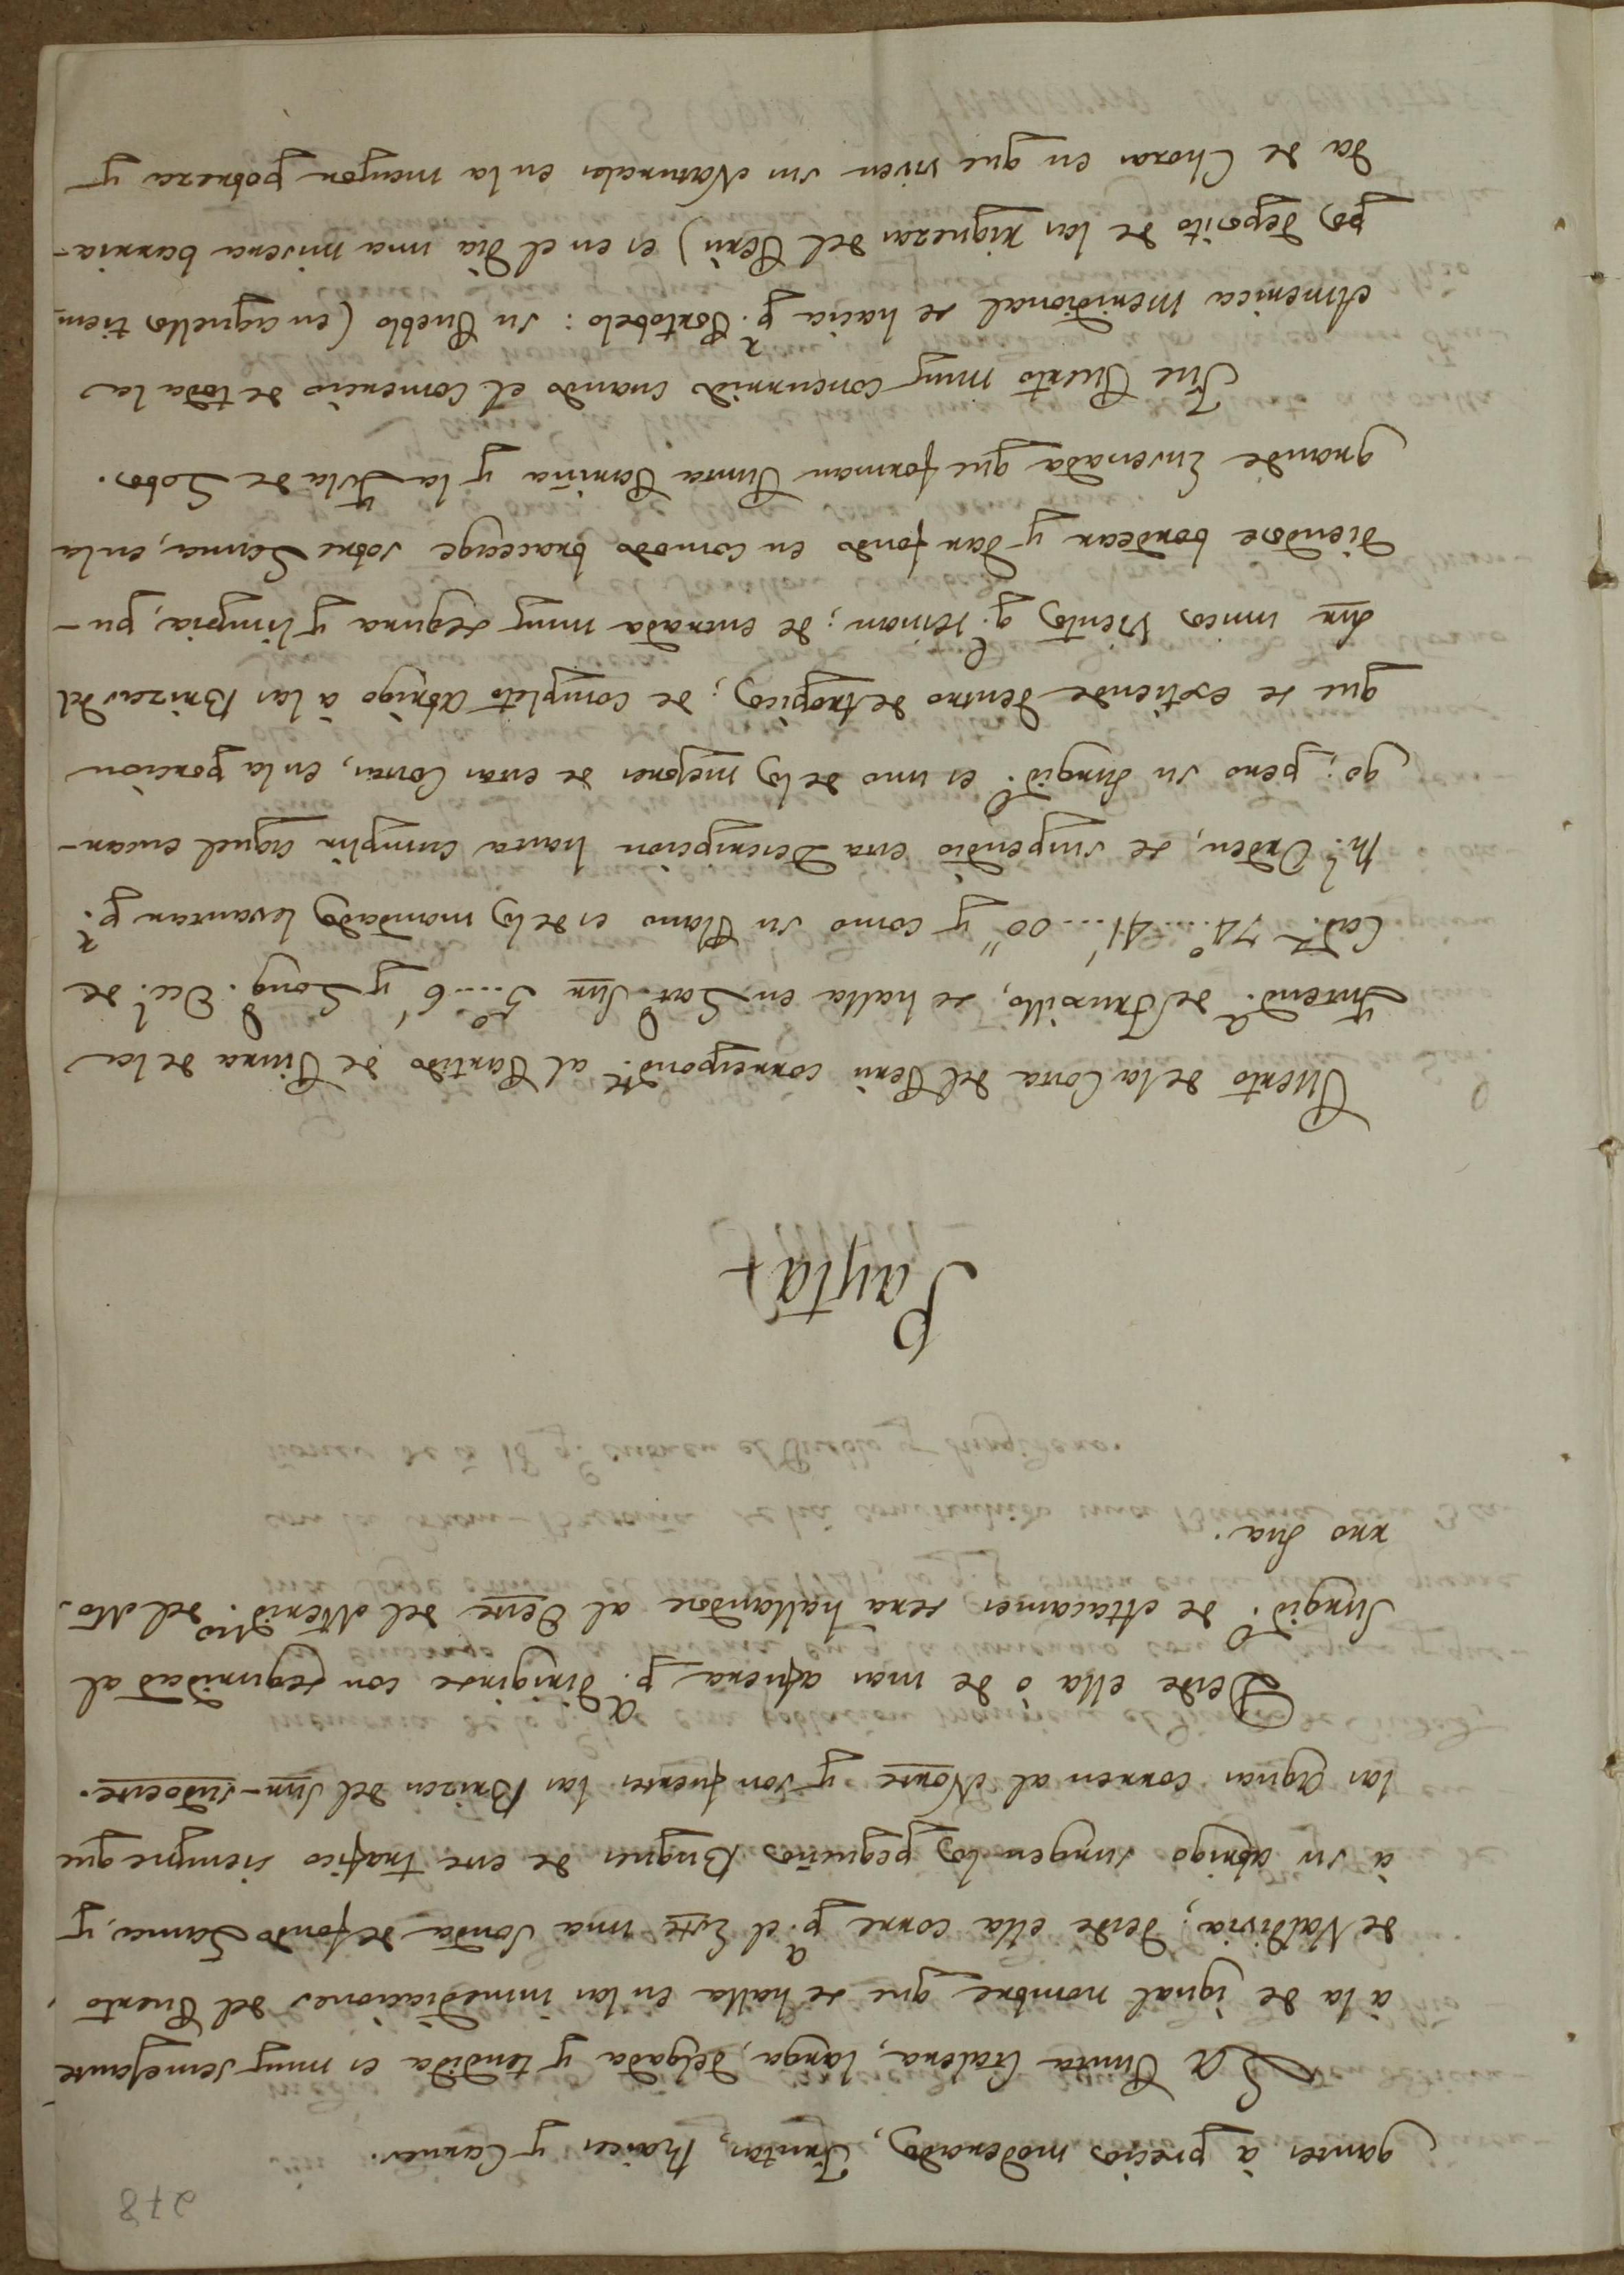 278
gantes à precios moderados, Frutas, Raices y Carnes.
La Punta Galera, larga, delgada, y tendida es muy semejante
à la de igual nombre que se halla en las inmediaciones del Puerto
de Valdivia; desde ella corre pa. el Este una Sonda de fondo Lama, y
à su abrigo surgen los pequeños Buques de este trafico siempre que
las Aguas corren al Norte y son fuertes las Brizas del Sur-sudoeste.
Desde ella ò de mar afuera pa. dirigirse con seguridad al
Surgido. de Atacames, sera hallandose al Oeste del Merid.no del Mo-
rro Sua.
Payta
Puerto de la Costa del Perù correspond.te al Partido de Piura de la
Intend.a de Truxillo, se halla en Lat. Sur 5°...6' y Long. Occ.l de
Cadz. 74°....41'....00" y como su Plano es de los mandados levantar pr.
Rl. Orden, se suspendiò esta Descripcion hasta cumplir aquel encar-
go; pero su Surgido. es uno de los mejores de estas Costas, en la porcion
que se estiende dentro de tropicos; de completo abrigo à las Brizas del
Sur unicos Vientos q. reinan; de entrada muy segura y limpia, pu-
diendose bordear y dar fondo en comodo braceage sobre Lama, en la
grande Ensenada que forman Punta Pariña y la Isla de Lobos.
Fue Puerto muy concurrido cuando el Comercio de toda la
America Meridional se hacia pr. Portobelo: su Pueblo (en aquellos tiem-
pos deposito de las riquezas del Perù) es en el dia una misera barria-
da de Chozas en que viven sus Naturales en la mayor pobreza y